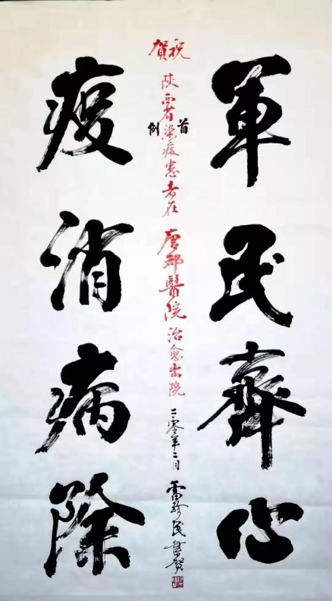 軍民齊心
祝賀
陝西省首例染疫患者在唐都醫院治愈出院
二〇二〇年二月 雷珍民書賀
疫消病除